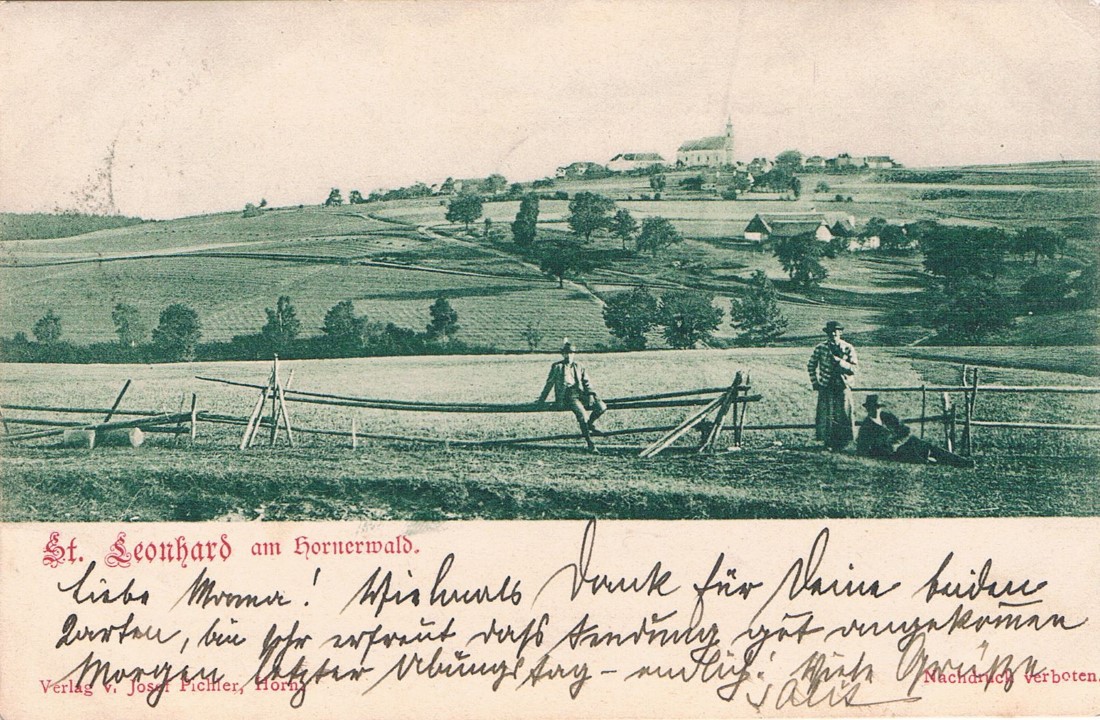 St. Leonhard am Hornerwald.
Liebe Mama! Vielmals Dank für Deine beiden
Karten, bin sehr erfreut daß Sendung gut angekommen
Morgen letzter Übungstag – endlich! Viele Grüße
Verlag v. Josef Pichler, Horn.
Nachdruck verboten.